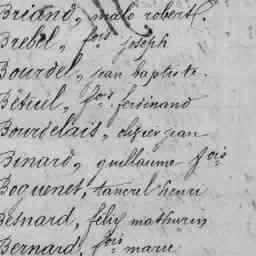 Briand, malo robert.
Brebel, f.ois joseph
Bourdel, jean baptiste.
Bétuel, f.ois ferdinand
Bourdelais, olivier jean
Binard, guillaume f.ois
Boguenet, tancrel henri
Besnard, félix mathurin
Bernard, f.ois marie